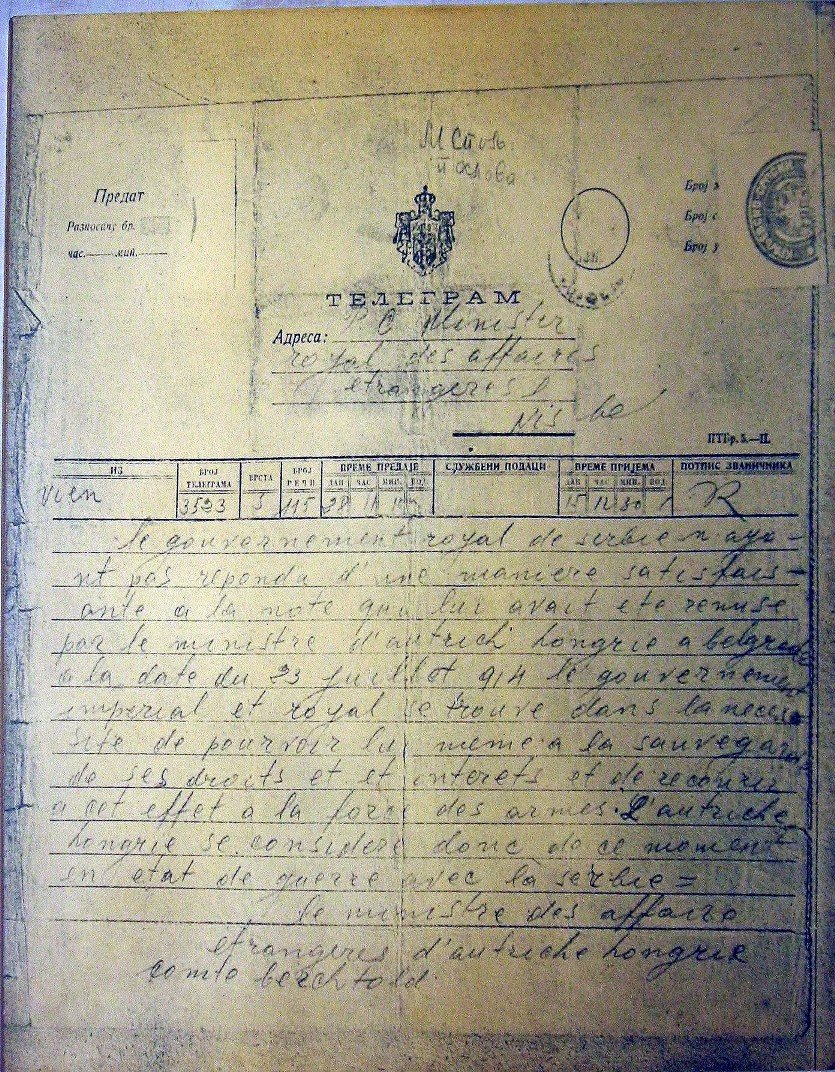 Предат
Разносач бр.
час. мин.
М Спољ.
послова
Број
Број
Број
ТЕЛЕГРАМ
Адреса: Minister
royal des affaires
etrangeres
Nis be
ПТБр. 5.—II.
ИЗ БРОЈ ТЕЛЕГРАМА ВРСТА БРОЈ РЕЧИ ВРЕМЕ ПРЕДАЈЕ СЛУЖБЕНИ ПОДАЦИ ВРЕМЕ ПРИЈЕМА ПОТПИС ЗВАНИЧНИКА
ДАН ЧАС МИН. ПОД. ДАН ЧАС МИН. ПОД.
Vien 3523 5 115 28 11 R
le gouvernement royal de serbie n ayo-
nt pas reponda d'une maniere satisfais-
ante a la note qui lui avait ete remise
par le ministre d'autrich hongrie a belgrade
a la date du 23 juillet 914 le gouvernement
imperial et royal se trouve dans la neces
site de pourvoir lui meme a la sauvegarde
de ses droits et et interets et de recourir
a cet effet a la force des armes. L'autriche
hongrie se considere donc de ce moment
en etat de guerre avec la serbie =
le ministre des affaire
etrangeres d'autriche hongrie
comte berchtold